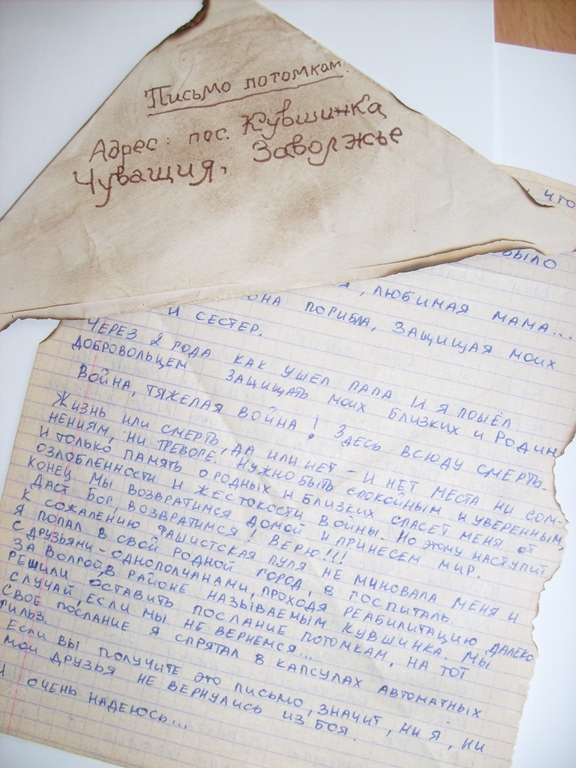 Письмо потомкам
Адрес: пос. Кувшинка
Чуващия, Заволжье
что
было
, любимая мама...
она погибла, защищая моих
и сестер.
Через 2 года как ушел папа и я пошёл
добровольцем защищать моих близких и Родин
Война, тяжелая война! Здесь всюду смерть.
Жизнь или смерть, да или нет - и нет места ни сом-
нениям, ни тревоге! Нужно быть спокойным и уверенным,
и только память о родных и близких спасет меня от
озлобленности и жестокости войны. Но этому наступит
конец мы возвратимся домой и принесем мир.
Даст Бог возвратимся! Верю!!!
К сожалению фашистская пуля не миновала меня и
я попал в свой родной город, в госпиталь.
С друзьями-однополчанами, проходя реабилитацию далеко
за Волгой в районе называемым Кувшинка. Мы
решили оставить послание потомкам, на тот
случай, если мы не вернемся...
Свое послание я спрятал в капсулах автоматных
гильз.
Если вы получите это письмо, значит, ни я, ни
мои друзья не вернулись из боя.
И очень надеюсь...